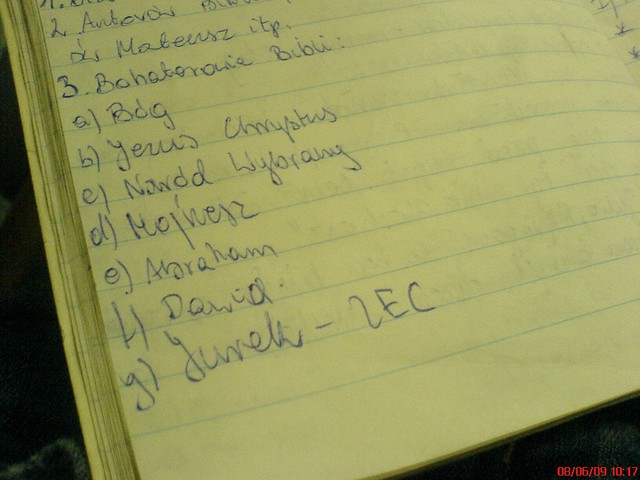 2. Autorów Bibli
św Mateusz itp.
3. Bohaterowie Bibli:
a) Bóg
b) Jezus Chrystus
c) Naród Wybrany
d) Mojżesz
e) Abraham
f) Dawid.
g) Jurek - ZEC
08/06/09 10:17